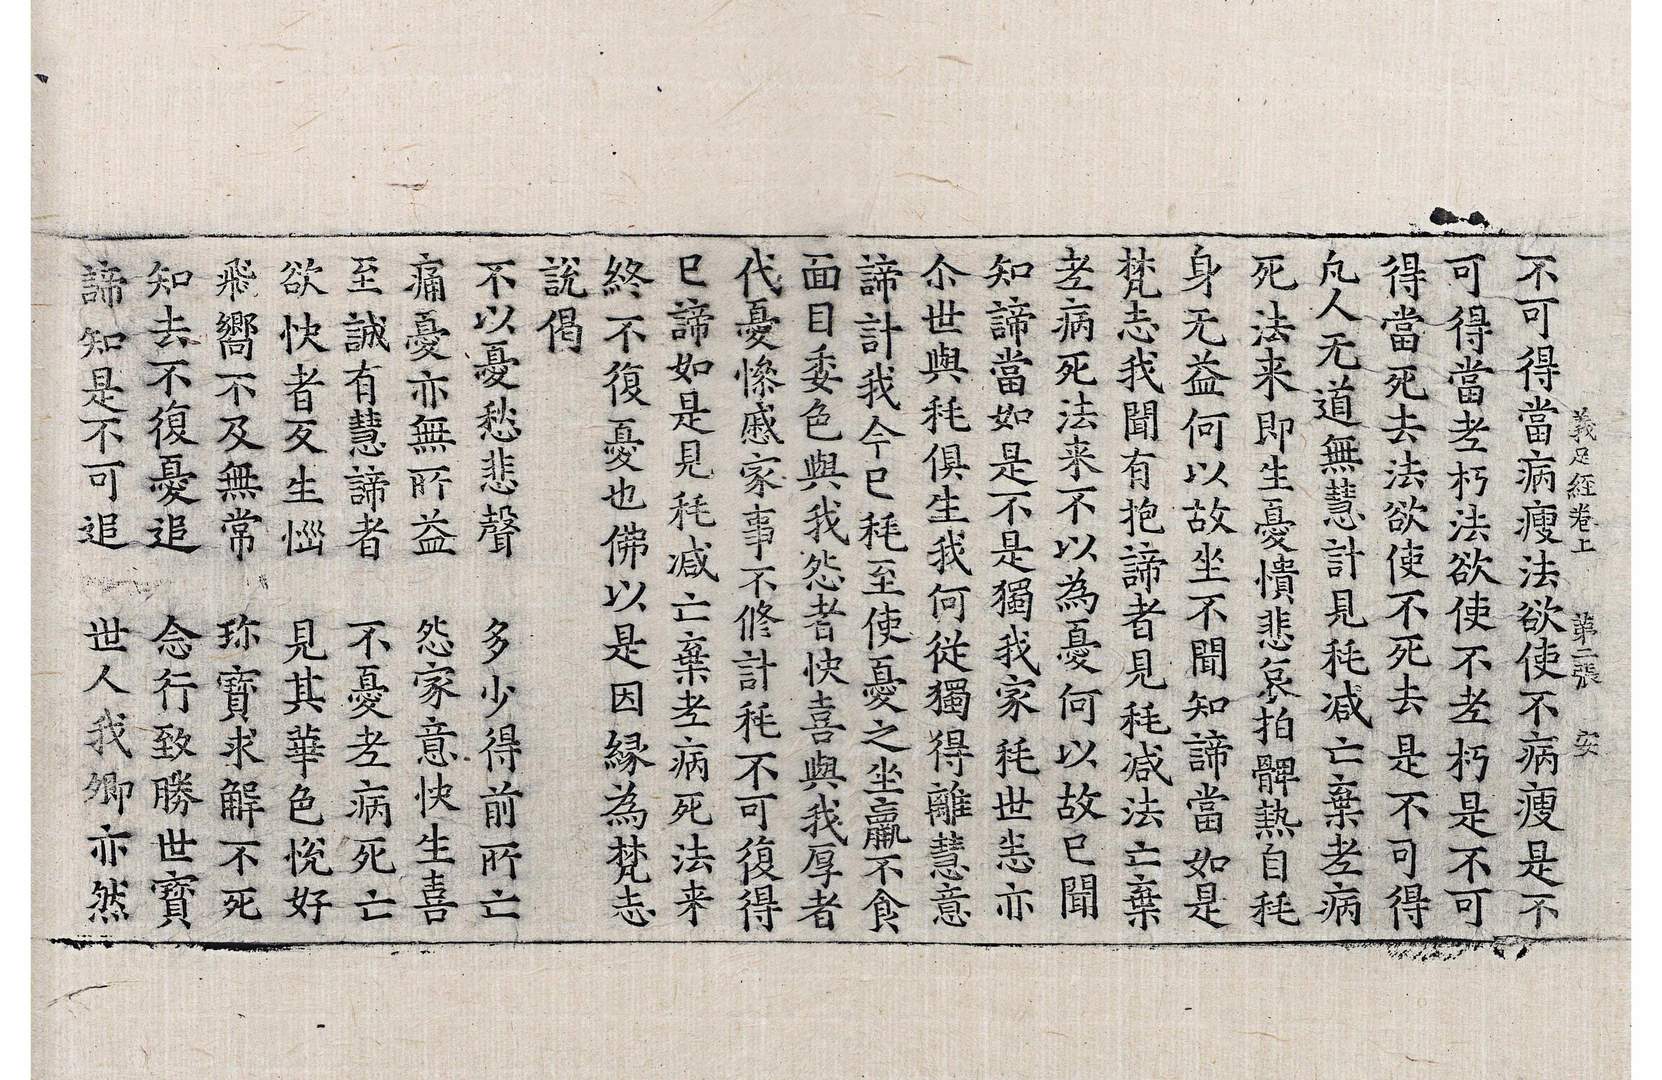 義足經卷上 第二張 安
不可得當病瘦法欲使不病瘦是不
可得當老朽法欲使不老朽是不可
得當死去法欲使不死去是不可得
凡人无道無慧計見秏减亡棄老病
死法来即生憂憒悲哀拍髀熱自秏
身无益何以故坐不聞知諦當如是
梵志我聞有抱諦者見秏减法亡棄
老病死法来不以為憂何以故已聞
知諦當如是不是獨我家秏世悉亦
尒世與秏俱生我何從獨得離慧意
諦計我今已秏至使憂之坐羸不食
面目委色與我怨者快喜與我厚者
代憂慘慼家事不修計秏不可復得
已諦如是見秏减亡棄老病死法来
終不復憂也佛以是因緣為梵志
說偈
不以憂愁悲聲 多少得前所亡
痛憂亦無所益 怨家意快生喜
至誠有慧諦者 不憂老病死亡
欲快者反生惱 見其華色悅好
飛嚮不及無常 珎寶求解不死
知去不復憂追 念行致勝世寶
諦知是不可追 世人我卿亦然